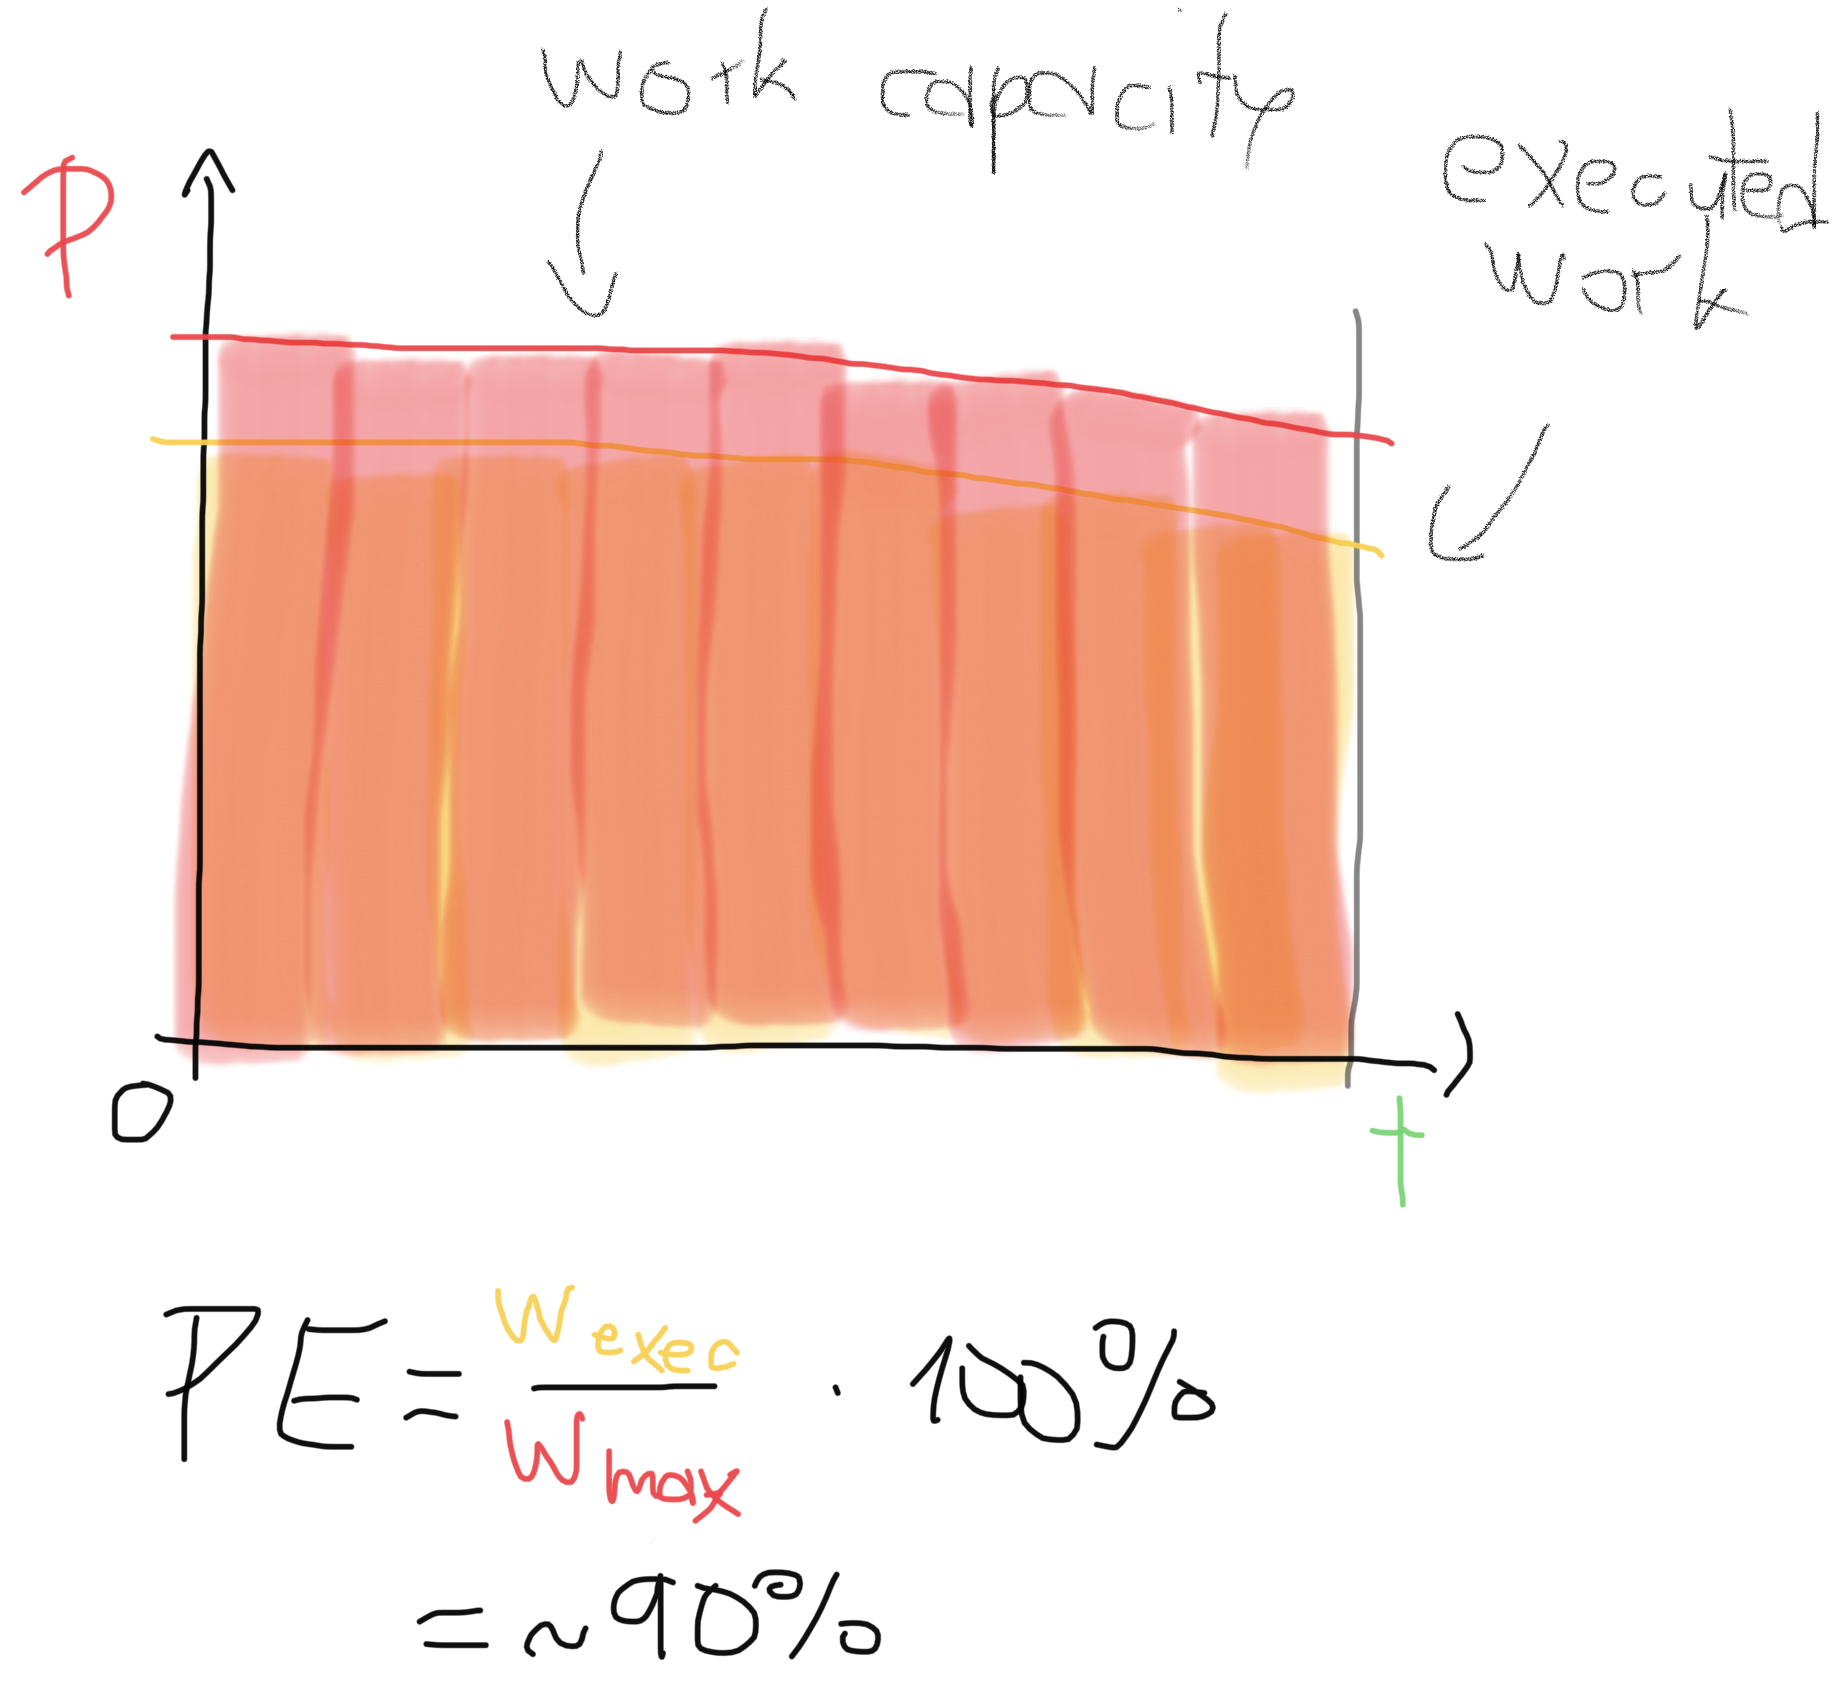 work capacity
executed
work
P
0
t
PE = Wexec / Wmax · 100%
= ~90%